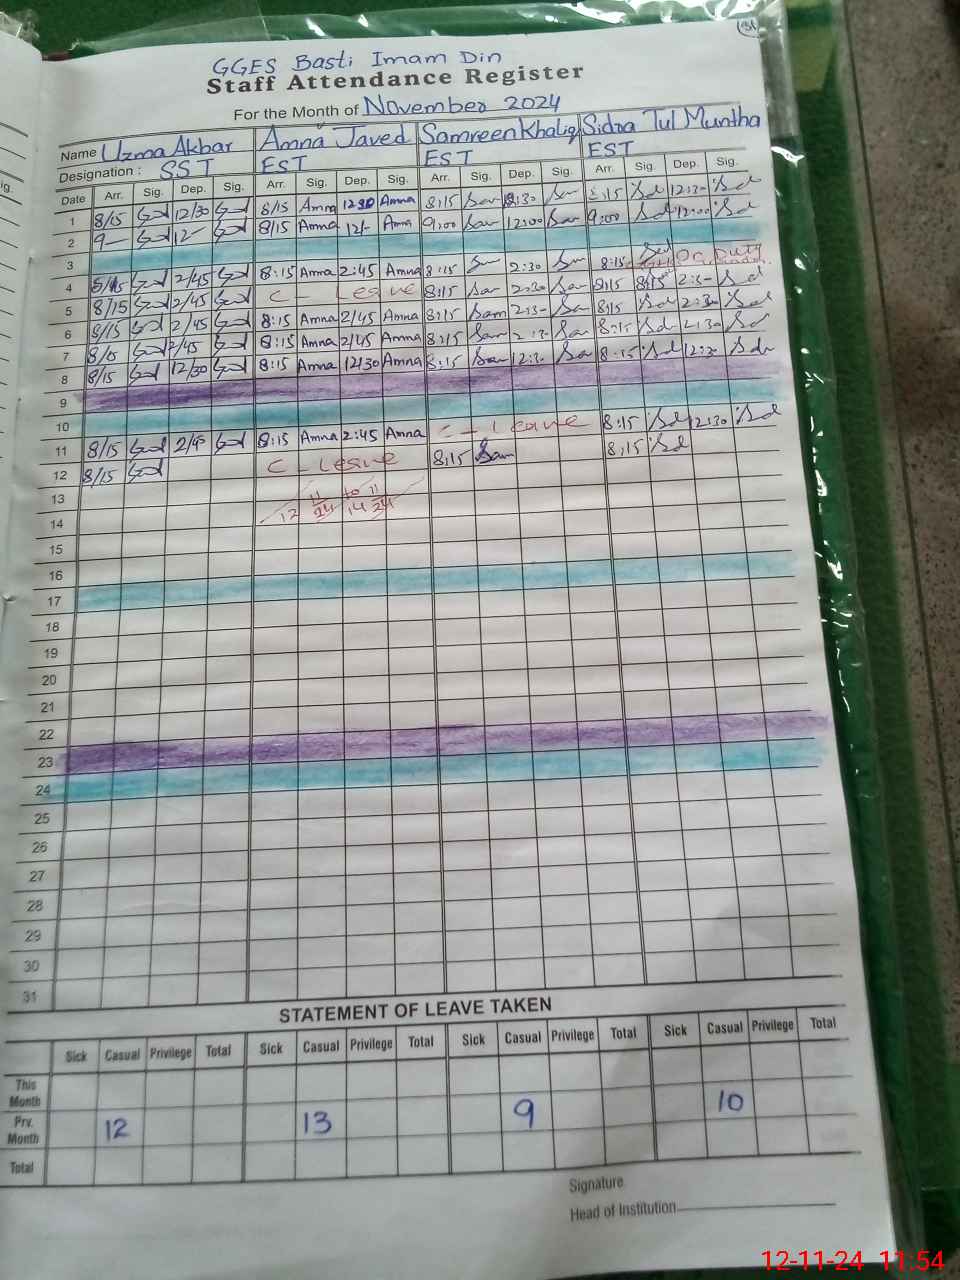 31
GGES Basti Imam Din
Staff Attendance Register
For the Month of November 2024
Name Uzma Akbar Amna Javed Samreen Khaliq Sidra Tul Muntha
Designation : SST EST EST EST
Date Arr. Sig. Dep. Sig. Arr. Sig. Dep. Sig. Arr. Sig. Dep. Sig. Arr. Sig. Dep. Sig.
1 8/15 12/30 8/15 Amna 1230 Amna 8:15 Sam 12:30 Sam 8:15 Sd 12:30 Sd
2 9- 12- 8/15 Amna 12/- Amna 9:00 Sam 12:00 Sam 9:00 Sd 12:00 Sd
3
4 2/45 8:15 Amna 2:45 Amna 8:15 2:30 8:15 Sd On Duty
5 8/15 2/45 C - Leave 8:15 Sam 2:30 Sam 8:15 2:30 Sd
6 8/15 2/45 8:15 Amna 2/45 Amna 8:15 Sam 2:30 Sam 8:15 Sd 2:30 Sd
7 8/15 2/45 8:15 Amna 2/45 Amna 8:15 Sam 2:30 Sam 8:15 Sd 2:30 Sd
8 8/15 12/30 8:15 Amna 12/30 Amna 8:15 Sam 12:30 Sam 8:15 Sd 12:30 Sd
9
10
11 8/15 2/45 8:15 Amna 2:45 Amna C - Leave 8:15 Sd 2:30 Sd
12 8/15 C - Leave 8:15 Sam 8:15 Sd
13
14
15
16
17
18
19
20
21
22
23
24
25
26
27
28
29
30
31
STATEMENT OF LEAVE TAKEN
Sick Casual Privilege Total Sick Casual Privilege Total Sick Casual Privilege Total Sick Casual Privilege Total
This Month
Prv. Month 12 13 9 10
Total
Signature
Head of Institution
12-11-24 11:54